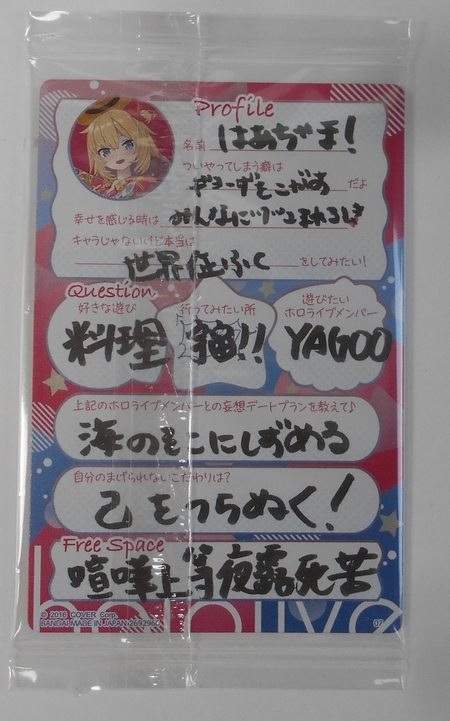 Profile
名前 はあちゃま!
ついやってしまう癖は
だよ
幸せを感じる時は みんなにツッコまれるとき
キャラじゃないけど本当は
世界征ふく をしてみたい!
Question
好きな遊び 行ってみたい所 遊びたい
ホロライブメンバー
料理 宇宙!! YAGOO
上記のホロライブメンバーとの妄想デートプランを教えて♪
海のそこにしずめる
自分のまげられないこだわりは?
己をつらぬく!
Free Space
喧嘩上等夜露死苦
hololive
© 2016 COVER Corp.
BANDAI MADE IN JAPAN 2692960
07